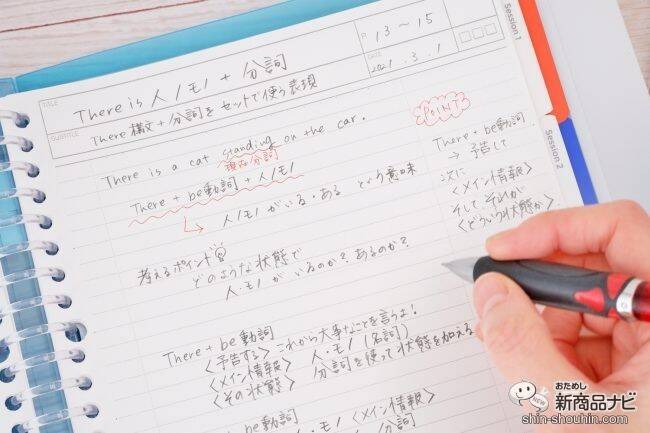 TITLE
There is 人/モノ + 分詞
P 13〜15
SUBTITLE
There構文+分詞をセットで使う表現
DATE
2021.3.1
Session 1
Session 2
There is a cat standing on the car.
現在分詞
There + be動詞 + 人/モノ
人/モノがいる・ある という意味
考えるポイント
どのような状態で
人・モノがいるのか?あるのか?
POINT!
There+be動詞
→ 予告して
次に
<メイン情報>
そして それが
<どういう状態か>
There + be動詞
<予告する> これから大事なことを言うよ!
<メイン情報> 人・モノ(名詞)
<その状態> 分詞を使って状態を加える
be動詞
モノ <メイン情報>
分詞
おためし
新商品ナビ
NEW
shin-shouhin.com